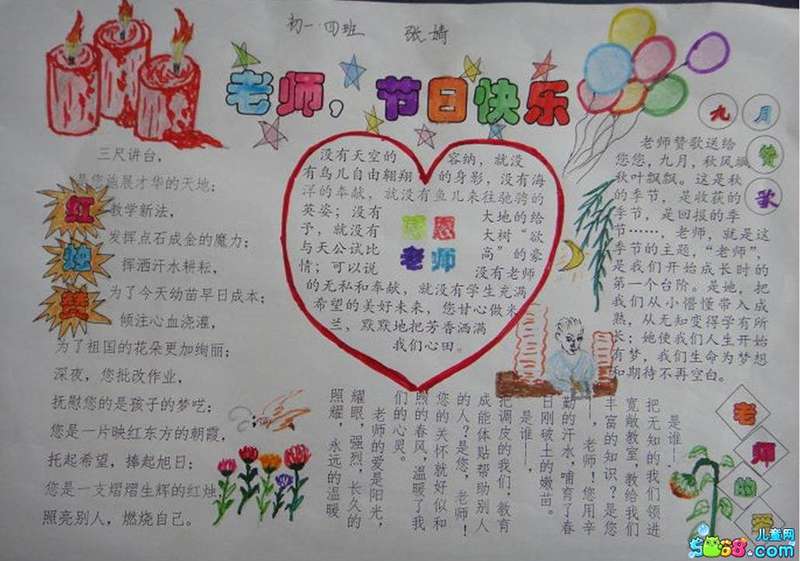 初一·四班 张婧
老师，节日快乐
红烛赞
三尺讲台，
是您施展才华的天地；
教学新法，
发挥点石成金的魔力；
挥洒汗水耕耘，
为了今天幼苗早日成本；
倾注心血浇灌，
为了祖国的花朵更加绚丽；
深夜，您批改作业，
抚慰您的是孩子的梦呓；
您是一片映红东方的朝霞，
托起希望，捧起旭日；
您是一支熠熠生辉的红烛，
照亮别人，燃烧自己。
感恩
老师
没有天空的容纳，就没
有鸟儿自由翱翔的身影，没有海
洋的奉献，就没有鱼儿来往驰骋的
英姿；没有大地的给
予，就没有大树“欲
与天公试比高”的豪
情；可以说没有老师
的无私和奉献，就没有学生充满
希望的美好未来，您甘心做米
兰，默默地把芳香洒满
我们心田。
九月赞歌
老师赞歌送给
您您，九月，秋风飒
秋叶飘飘。这是秋
的季节，是收获的
季节，是回报的季
节……，老师，就是这
季节的主题，“老师”，
是我们开始成长时的
第一个台阶。是她，把
我们从小懵懂带入成
熟，从无知变得学有所
长；她使我们人生开始
有梦，我们生命为梦想
和期待不再空白。
老师的爱
是谁——，
把无知的我们领进
宽敞教室，教给我们
丰富的知识？是您
——，老师！您用辛
勤的汗水，哺育了春
日刚破土的嫩苗。
是谁——，
把调皮的我们，教育
成能体贴帮助别人
的人？是您，老师！
您的关怀就好似和
煦的春风，温暖了我
们的心灵。
老师的爱是阳光，
耀眼，强烈，长久的
照耀，永远的温暖
儿童网
5068.com